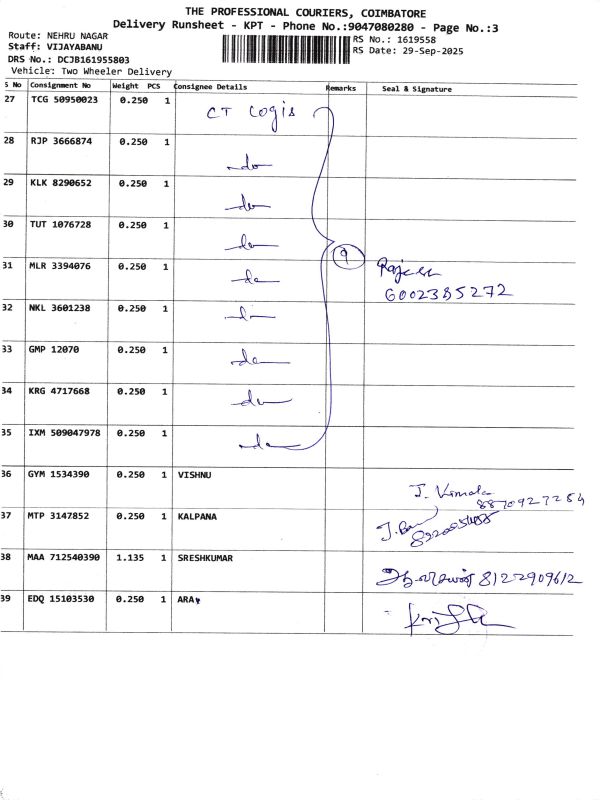 THE PROFESSIONAL COURIERS, COIMBATORE
Delivery Runsheet - KPT - Phone No.:9047080280 - Page No.:3
Route: NEHRU NAGAR
RS No.: 1619558
Staff: VIJAYABANU
RS Date: 29-Sep-2025
DRS No.: DCJB161955803
Vehicle: Two Wheeler Delivery
S No Consignment No Weight PCS Consignee Details Remarks Seal & Signature
27 TCG 50950023 0.250 1 CT Logis
28 RJP 3666874 0.250 1 do
29 KLK 8290652 0.250 1 do
30 TUT 1076728 0.250 1 do
31 MLR 3394076 0.250 1 do 9 Rajesh
6002385272
32 NKL 3601238 0.250 1 do
33 GMP 12070 0.250 1 do
34 KRG 4717668 0.250 1 do
35 IXM 509047978 0.250 1 do
36 GYM 1534390 0.250 1 VISHNU J. Vimala
8870927254
37 MTP 3147852 0.250 1 KALPANA
38 MAA 712540390 1.135 1 SRESHKUMAR 8122909612
39 EDQ 15103530 0.250 1 ARA